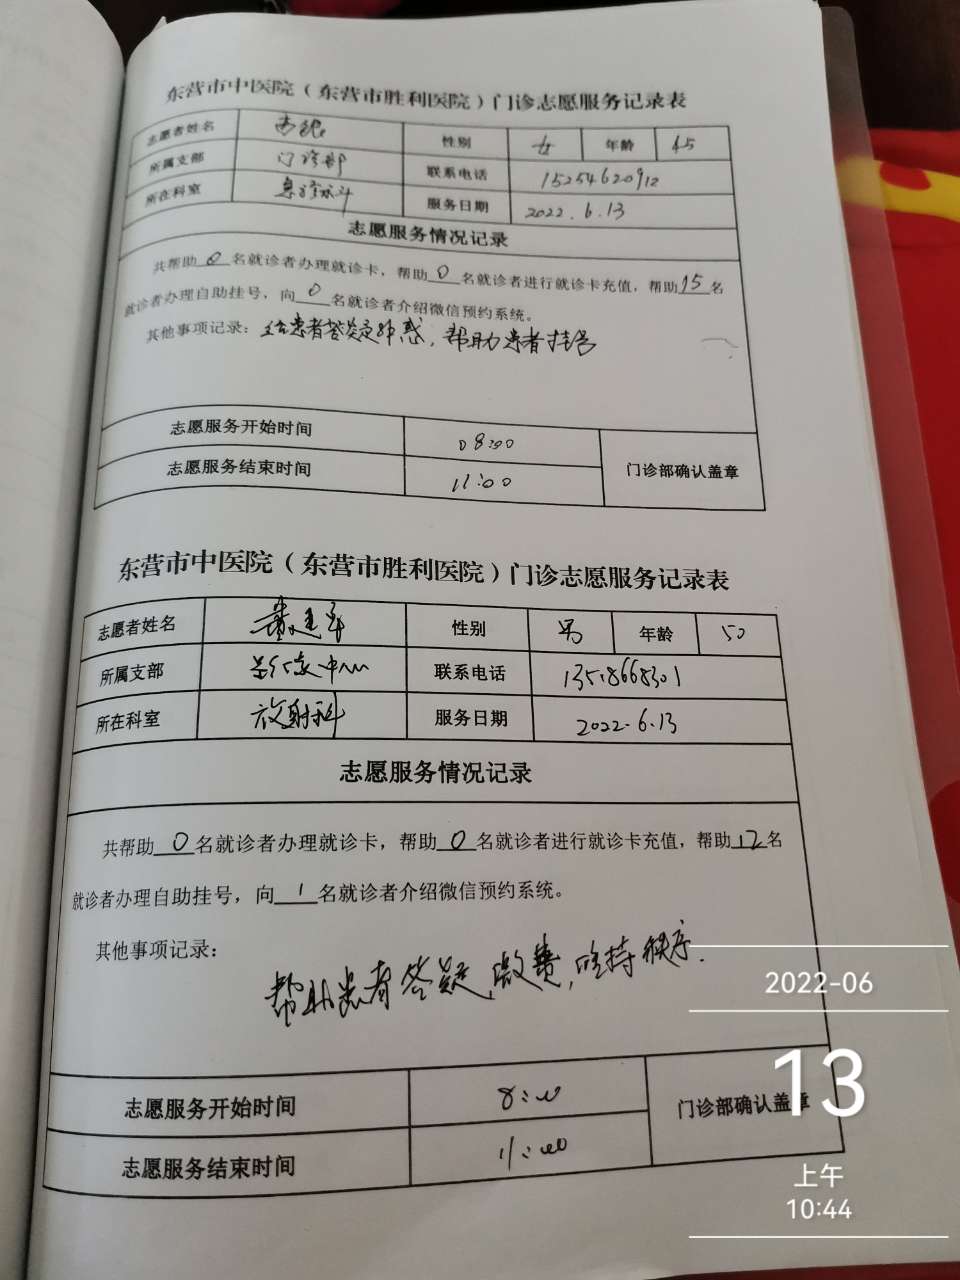 东营市中医院（东营市胜利医院）门诊志愿服务记录表
志愿者姓名 性别 女 年龄 45
所属支部 门诊部 联系电话 15254620912
所在科室 服务日期 2022.6.13
志愿服务情况记录
共帮助0名就诊者办理就诊卡，帮助0名就诊者进行就诊卡充值，帮助15名
就诊者办理自助挂号，向0名就诊者介绍微信预约系统。
其他事项记录：给患者答疑解惑，帮助患者挂号
志愿服务开始时间 08:00
门诊部确认盖章
志愿服务结束时间 11:00
东营市中医院（东营市胜利医院）门诊志愿服务记录表
志愿者姓名 性别 男 年龄 50
所属支部 联系电话
所在科室 放射科 服务日期 2022.6.13
志愿服务情况记录
共帮助0名就诊者办理就诊卡，帮助0名就诊者进行就诊卡充值，帮助12名
就诊者办理自助挂号，向1名就诊者介绍微信预约系统。
其他事项记录：
帮助患者答疑，缴费，维持秩序.
志愿服务开始时间 8:00
门诊部确认盖章
志愿服务结束时间 11:00
2022-06
13
上午
10:44